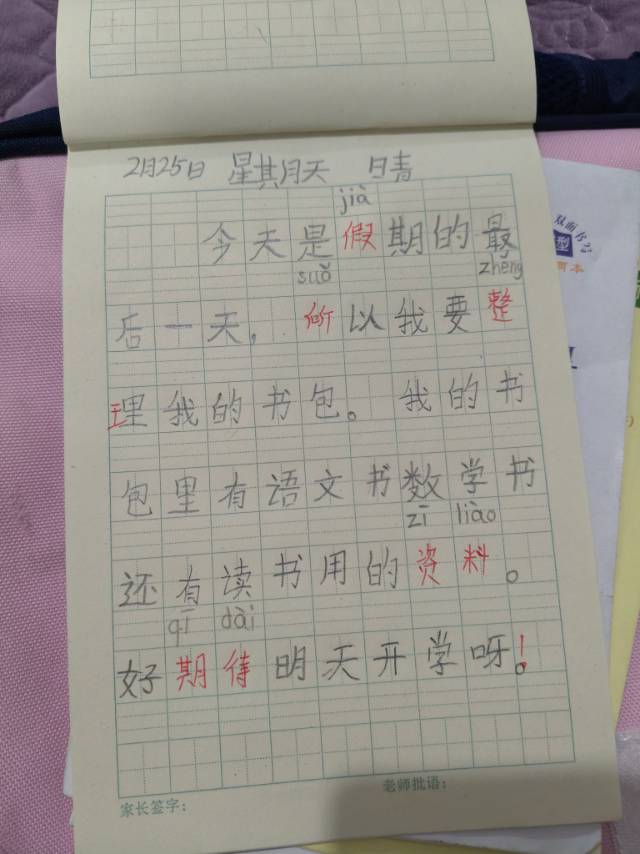 2月25日 星期天 日青
jià
今天是假期的最
suǒ zhěng
后一天，所以我要整
理我的书包。我的书
包里有语文书数学书
zī liào
还有读书用的资料。
qī dài
好期待明天开学呀！
家长签字： 老师批语：
双面书写
型